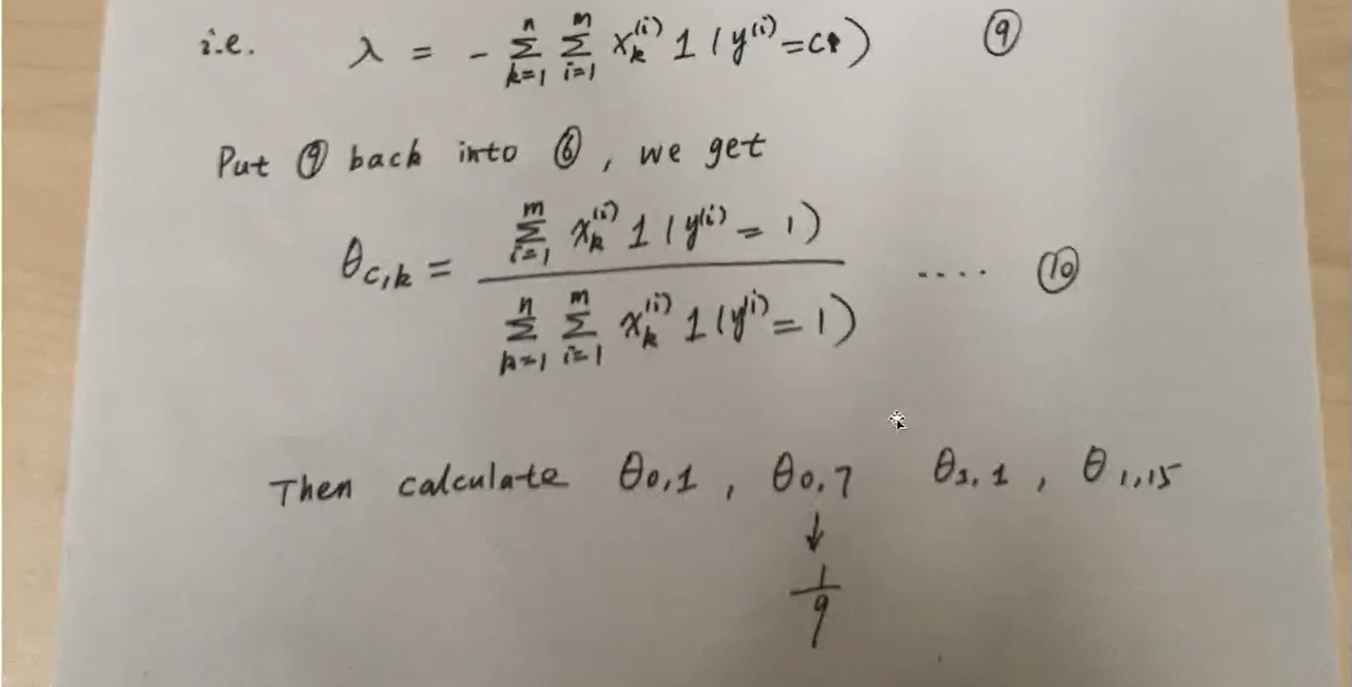 i.e. λ = - Σ_{k=1}^{n} Σ_{i=1}^{m} x_k^{(i)} 1 ( y^{(i)} = c )   ⑨
Put ⑨ back into ⑥, we get
θ_{c,k} = \frac{Σ_{i=1}^{m} x_k^{(i)} 1 ( y^{(i)} = 1 )}{Σ_{k=1}^{n} Σ_{i=1}^{m} x_k^{(i)} 1 ( y^{(i)} = 1 )} .... ⑩
Then calculate θ_{0,1} , θ_{0,7} θ_{1,1} , θ_{1,15}
↓
\frac{1}{9}